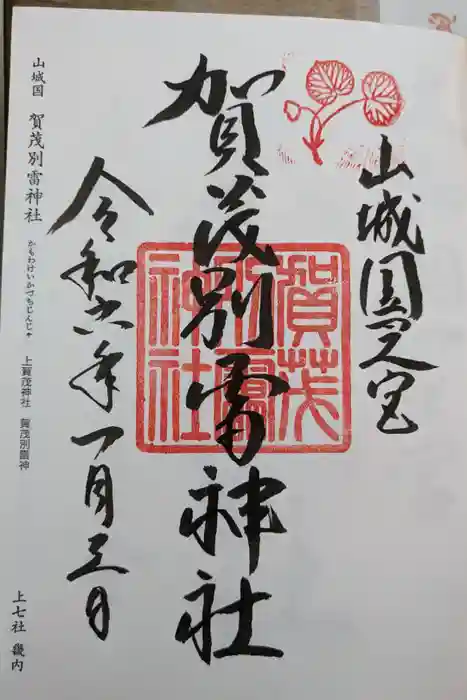 山城国一之宮
賀茂別雷神社
賀茂別雷神社
令和六年一月三日
山城国 賀茂別雷神社 かもわけいかづちじんじゃ 上賀茂神社 賀茂別雷神
上七社 畿内